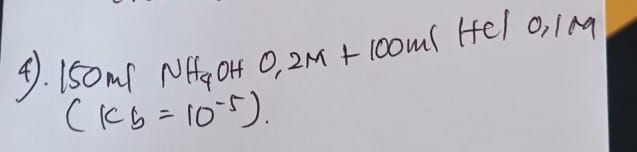 4). 150 ml NH4OH 0,2M + 100ml HCl 0,1M
(Kb = 10⁻⁵).